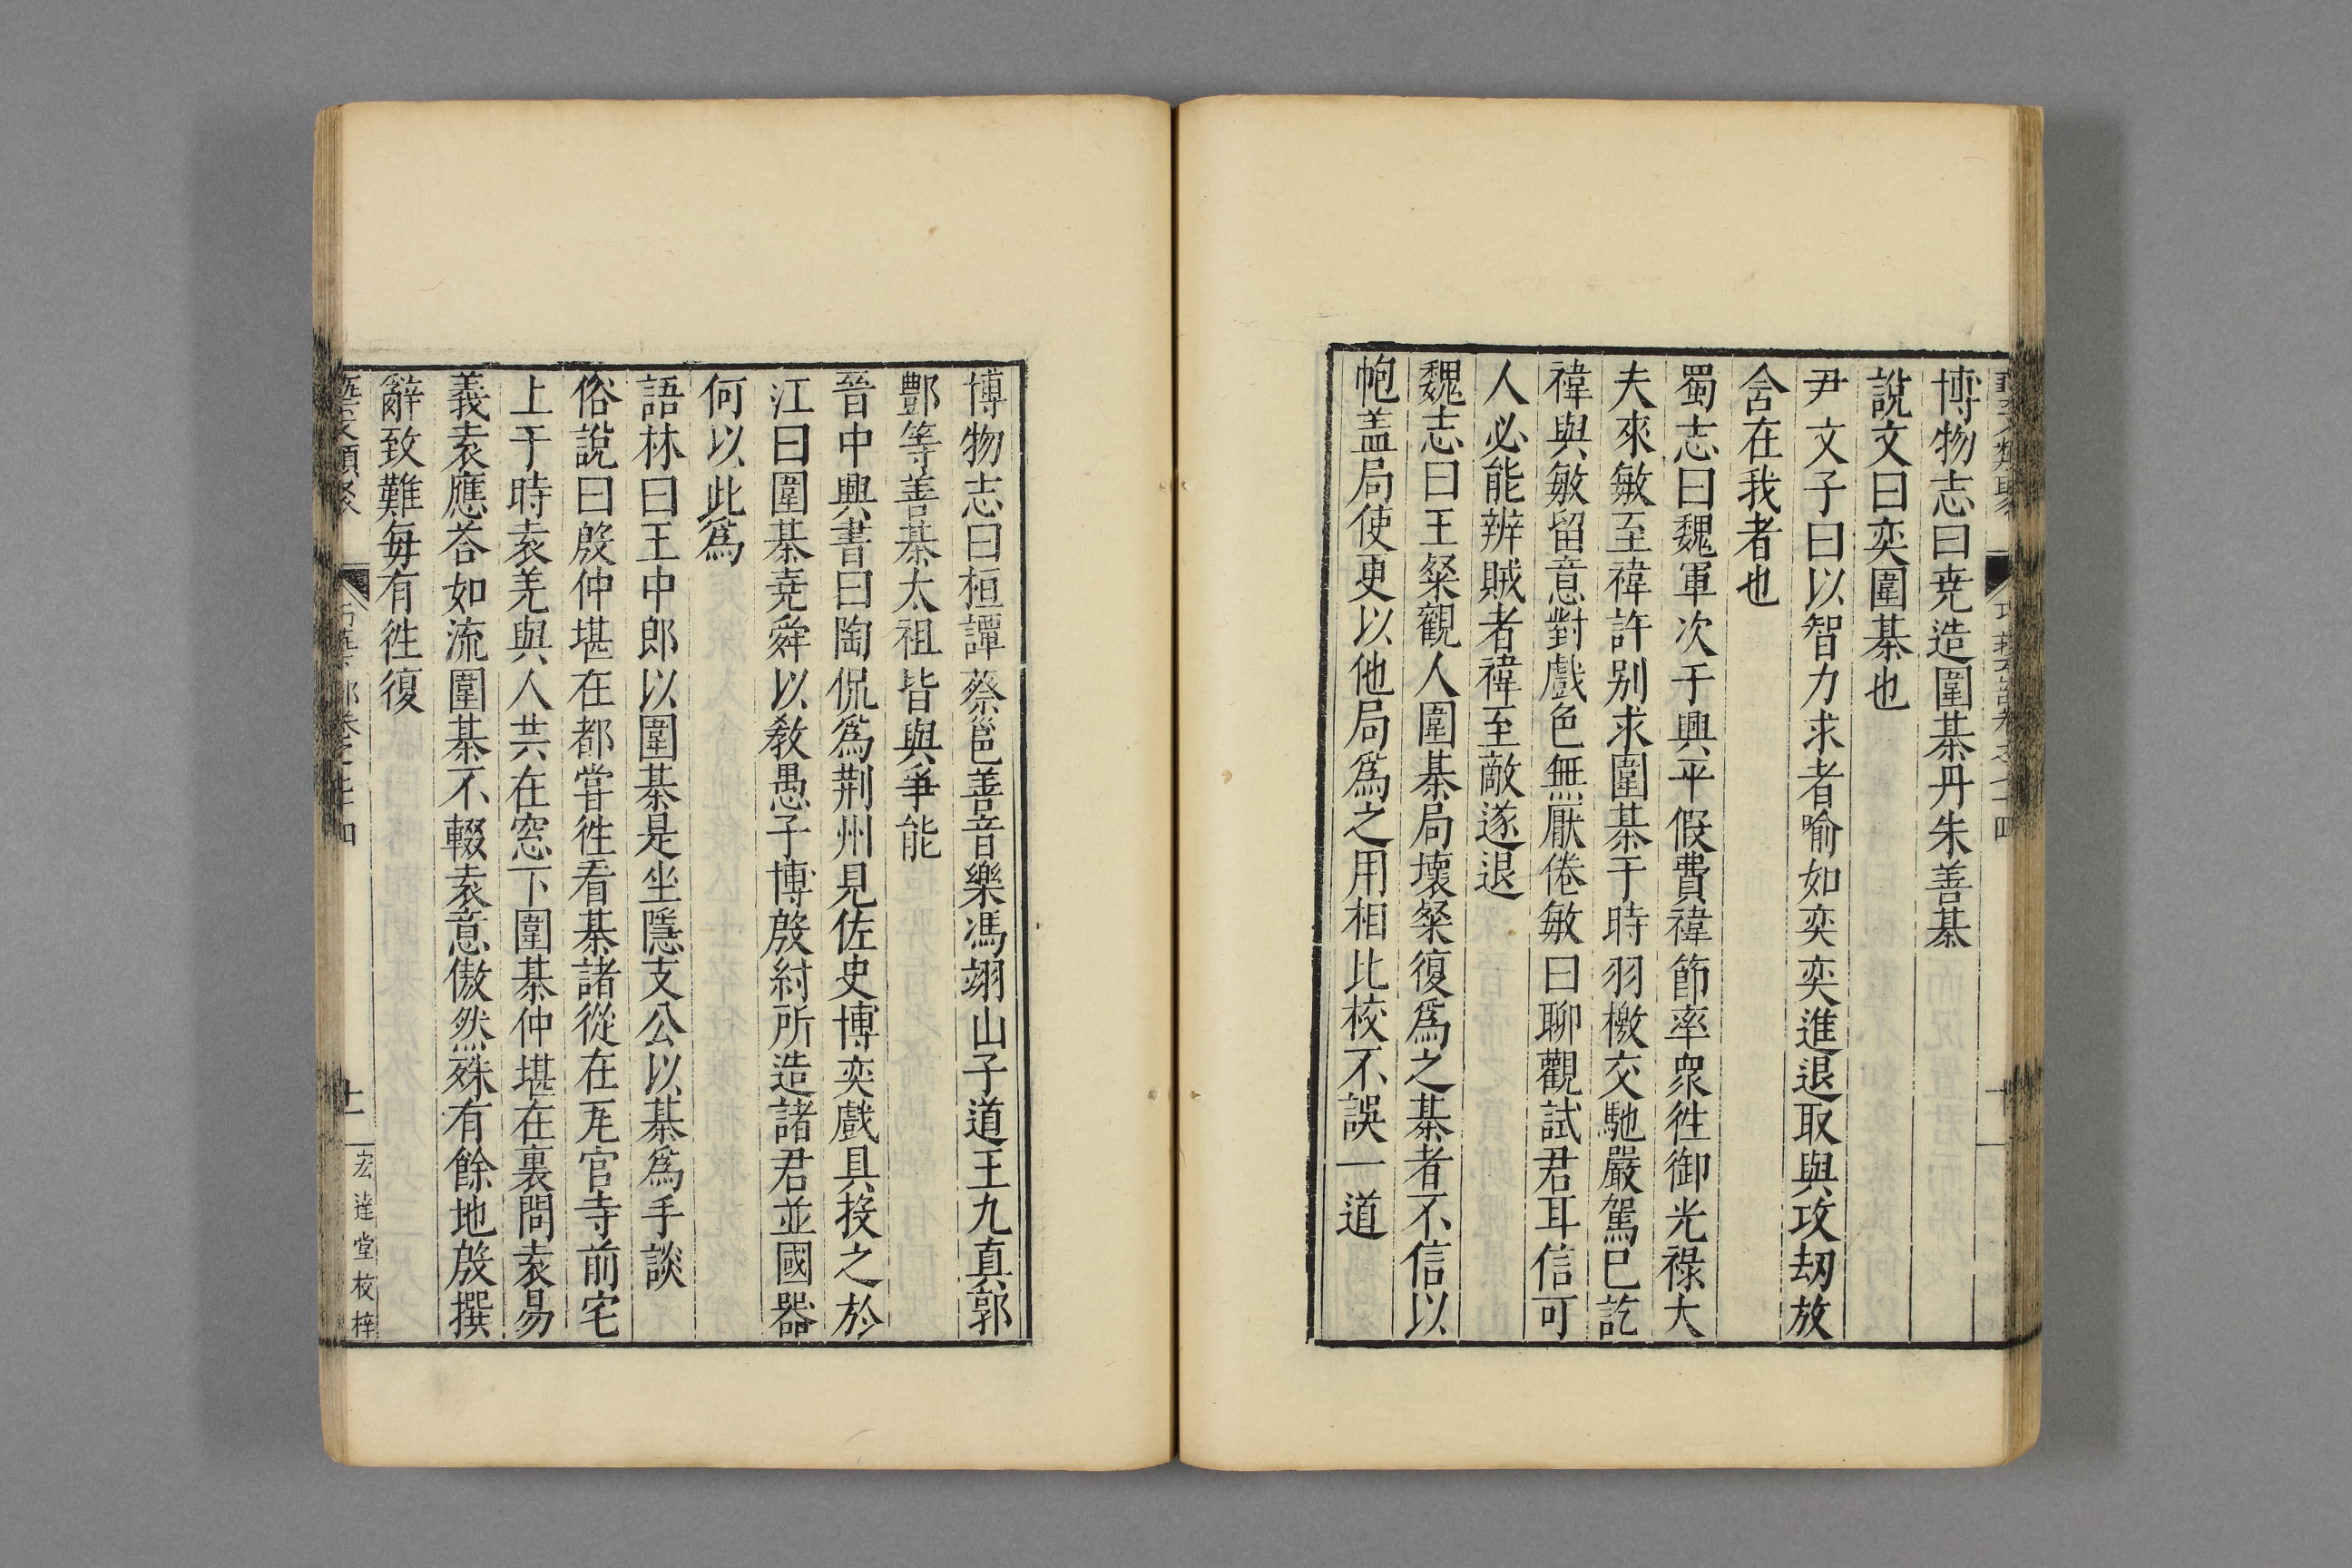 博物志曰尭造圍棊丹朱善棊
說文曰奕圍棊也
尹文子曰以智力求者喻如奕奕進退取與攻刼放
舍在我者也
蜀志曰魏軍次于興平假費禕節率衆徃御光祿大
夫來敏至禕許别求圍棊于時羽檄交馳嚴駕已訖
禕與敏留意對戲色無厭倦敏曰聊觀試君耳信可
人必能辨賊者禕至敵遂退
魏志曰王粲觀人圍棊局壞粲復爲之棊者不信以
帊盖局使更以他局爲之用相比校不誤一道
博物志曰桓譚蔡邕善音樂馮翊山子道王九真郭
酆等善棊太祖皆與爭能
晉中興書曰陶侃爲荆州見佐史博奕戲具投之於
江曰圍棊尭舜以敎愚子博殷紂所造諸君並國器
何以此爲
語林曰王中郎以圍棊是坐隱支公以棊爲手談
俗說曰殷仲堪在都甞徃看棊諸從在瓦官寺前宅
上于時袁羌與人共在窓下圍棊仲堪在裏問袁易
義袁應荅如流圍棊不輟袁意傲然殊有餘地殷撰
辭致難毎有徃復
宏達堂校梓